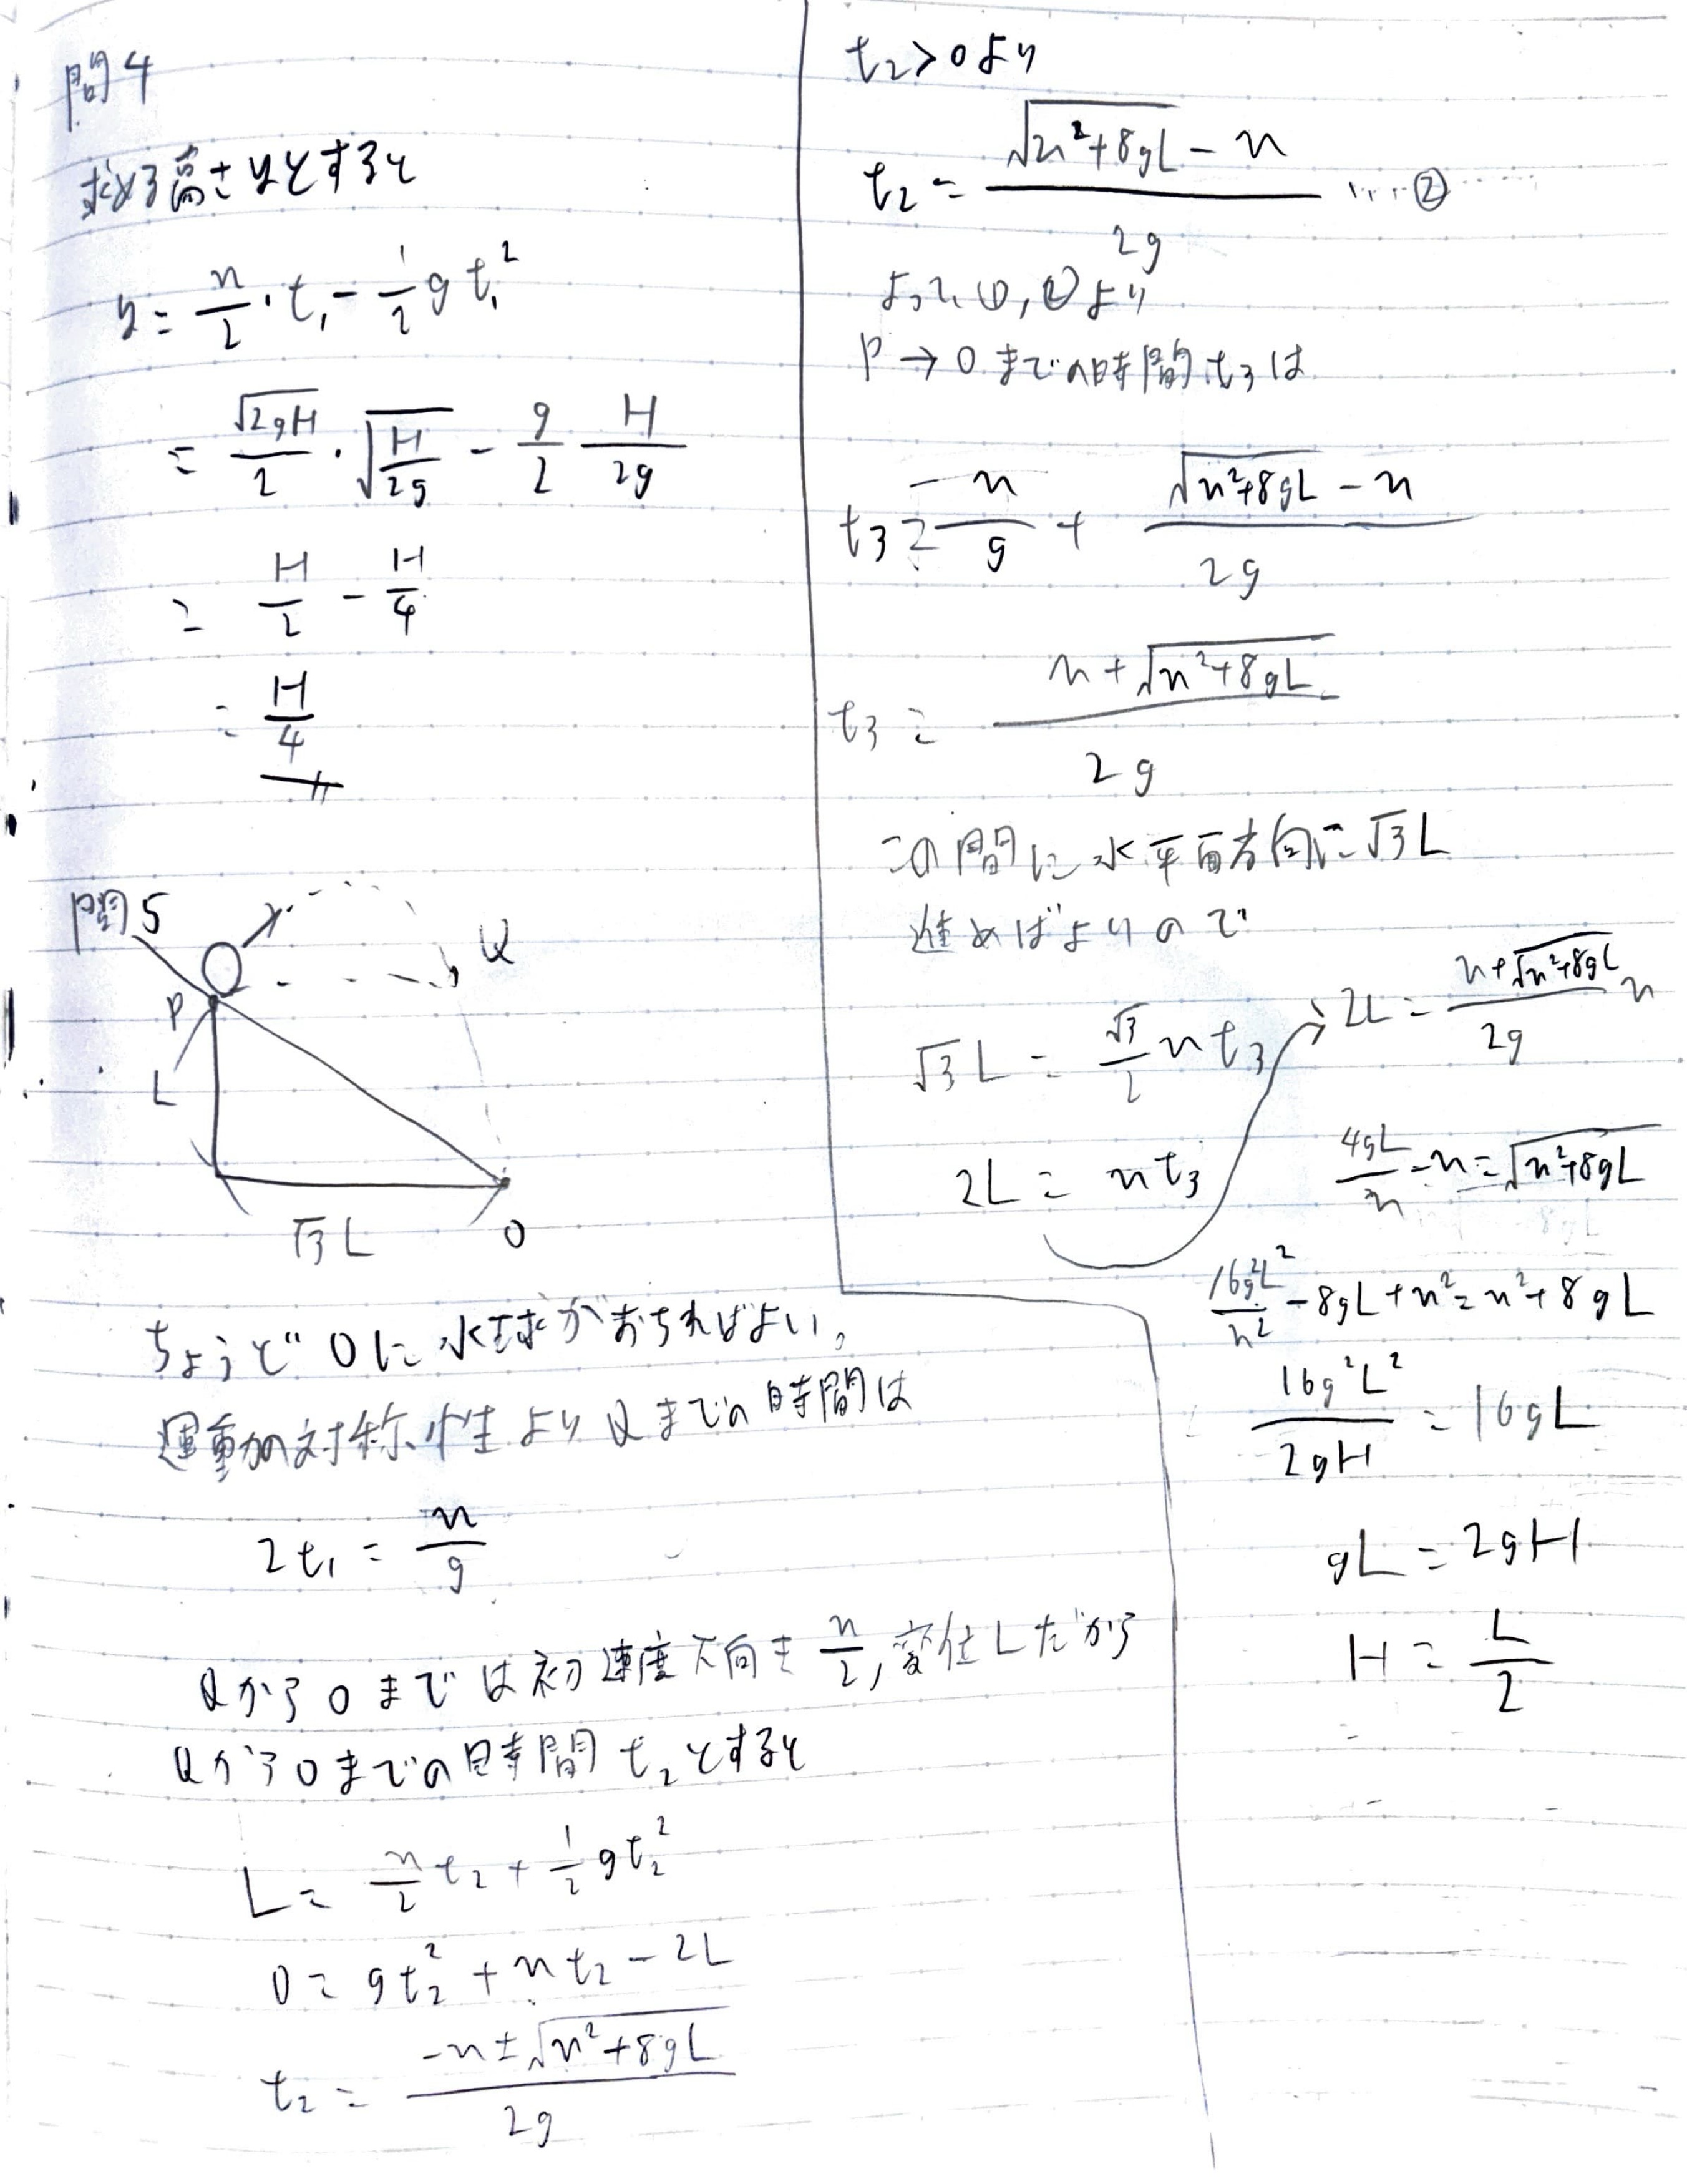 問4
求める高さyとすると
y = u/2・t₁ - 1/2 g t₁²
= √2gH/2・√(H/2g) - g/2 H/2g
= H/2 - H/4
= H/4
問5
Q
P
L
√3 L
O
ちょうどOに小球がおちればよい。
運動の対称性よりQまでの時間は
2t₁ = u/g
QからOまでは初速度下向き u/2,変位Lだから
QからOまでの時間 t₂とすると
L = u/2 t₂ + 1/2 g t₂²
0 = g t₂² + u t₂ - 2L
t₂ = (-u ± √(u²+8gL))/2g
t₂ > 0 より
t₂ = (√(u²+8gL) - u)/2g ....②
よって、①, ②より
P → O までの時間 t₃は
t₃ = u/g + (√(u²+8gL) - u)/2g
t₃ = (u + √(u²+8gL))/2g
この間に水平面方向に√3 L
進めばよいので
√3 L = √3/2 u t₃
2L = u t₃
2L = (u + √(u²+8gL))/2g u
4gL/u - u = √(u²+8gL)
16g²L²/u² - 8gL + u² = u² + 8gL
16g²L²/2gH = 16gL
gL = 2gH
H = L/2